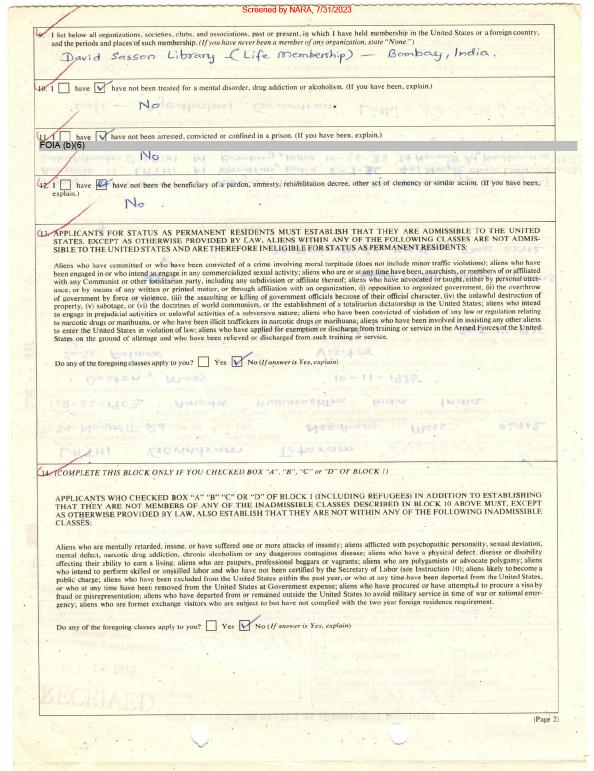 Screened by NARA, 7/31/2023
9. I list below all organizations, societies, clubs, and associations, past or present, in which I have held membership in the United States or a foreign country,
and the periods and places of such membership. (If you have never been a member of any organization, state "None.")
David Sasson Library - (Life Membership) - Bombay, India.
10. I have have not been treated for a mental disorder, drug addiction or alcoholism. (If you have been, explain.)
No
11. I have have not been arrested, convicted or confined in a prison. (If you have been, explain.)
FOIA (b)(6)
No
12. I have have not been the beneficiary of a pardon, amnesty, rehabilitation decree, other act of clemency or similar action. (If you have been,
explain.)
No.
13. APPLICANTS FOR STATUS AS PERMANENT RESIDENTS MUST ESTABLISH THAT THEY ARE ADMISSIBLE TO THE UNITED
STATES. EXCEPT AS OTHERWISE PROVIDED BY LAW, ALIENS WITHIN ANY OF THE FOLLOWING CLASSES ARE NOT ADMIS-
SIBLE TO THE UNITED STATES AND ARE THEREFORE INELIGIBLE FOR STATUS AS PERMANENT RESIDENTS:
Aliens who have committed or who have been convicted of a crime involving moral turpitude (does not include minor traffic violations); aliens who have
been engaged in or who intend to engage in any commercialized sexual activity; aliens who are or at any time have been, anarchists, or members of or affiliated
with any Communist or other totalitarian party, including any subdivision or affiliate thereof; aliens who have advocated or taught, either by personal utter-
ance, or by means of any written or printed matter, or through affiliation with an organization, (i) opposition to organized government, (ii) the overthrow
of government by force or violence, (iii) the assaulting or killing of government officials because of their official character, (iv) the unlawful destruction of
property, (v) sabotage, or (vi) the doctrines of world communism, or the establishment of a totalitarian dictatorship in the United States; aliens who intend
to engage in prejudicial activities or unlawful activities of a subversive nature; aliens who have been convicted of violation of any law or regulation relating
to narcotic drugs or marihuana, or who have been illicit traffickers in narcotic drugs or marihuana; aliens who have been involved in assisting any other aliens
to enter the United States in violation of law; aliens who have applied for exemption or discharge from training or service in the Armed Forces of the United
States on the ground of alienage and who have been relieved or discharged from such training or service.
Do any of the foregoing classes apply to you? Yes No (If answer is Yes, explain)
14. (COMPLETE THIS BLOCK ONLY IF YOU CHECKED BOX "A", "B", "C" or "D" OF BLOCK 1)
APPLICANTS WHO CHECKED BOX "A" "B" "C" OR "D" OF BLOCK 1 (INCLUDING REFUGEES) IN ADDITION TO ESTABLISHING
THAT THEY ARE NOT MEMBERS OF ANY OF THE INADMISSIBLE CLASSES DESCRIBED IN BLOCK 10 ABOVE MUST, EXCEPT
AS OTHERWISE PROVIDED BY LAW, ALSO ESTABLISH THAT THEY ARE NOT WITHIN ANY OF THE FOLLOWING INADMISSIBLE
CLASSES:
Aliens who are mentally retarded, insane, or have suffered one or more attacks of insanity; aliens afflicted with psychopathic personality, sexual deviation,
mental defect, narcotic drug addiction, chronic alcoholism or any dangerous contagious disease; aliens who have a physical defect, disease or disability
affecting their ability to earn a living; aliens who are paupers, professional beggars or vagrants; aliens who are polygamists or advocate polygamy; aliens
who intend to perform skilled or unskilled labor and who have not been certified by the Secretary of Labor (see Instruction 10); aliens likely to become a
public charge; aliens who have been excluded from the United States within the past year, or who at any time have been deported from the United States,
or who at any time have been removed from the United States at Government expense; aliens who have procured or have attempted to procure a visa by
fraud or misrepresentation; aliens who have departed from or remained outside the United States to avoid military service in time of war or national emer-
gency; aliens who are former exchange visitors who are subject to but have not complied with the two year foreign residence requirement.
Do any of the foregoing classes apply to you? Yes No (If answer is Yes, explain)
RECEIVED
(Page 2)